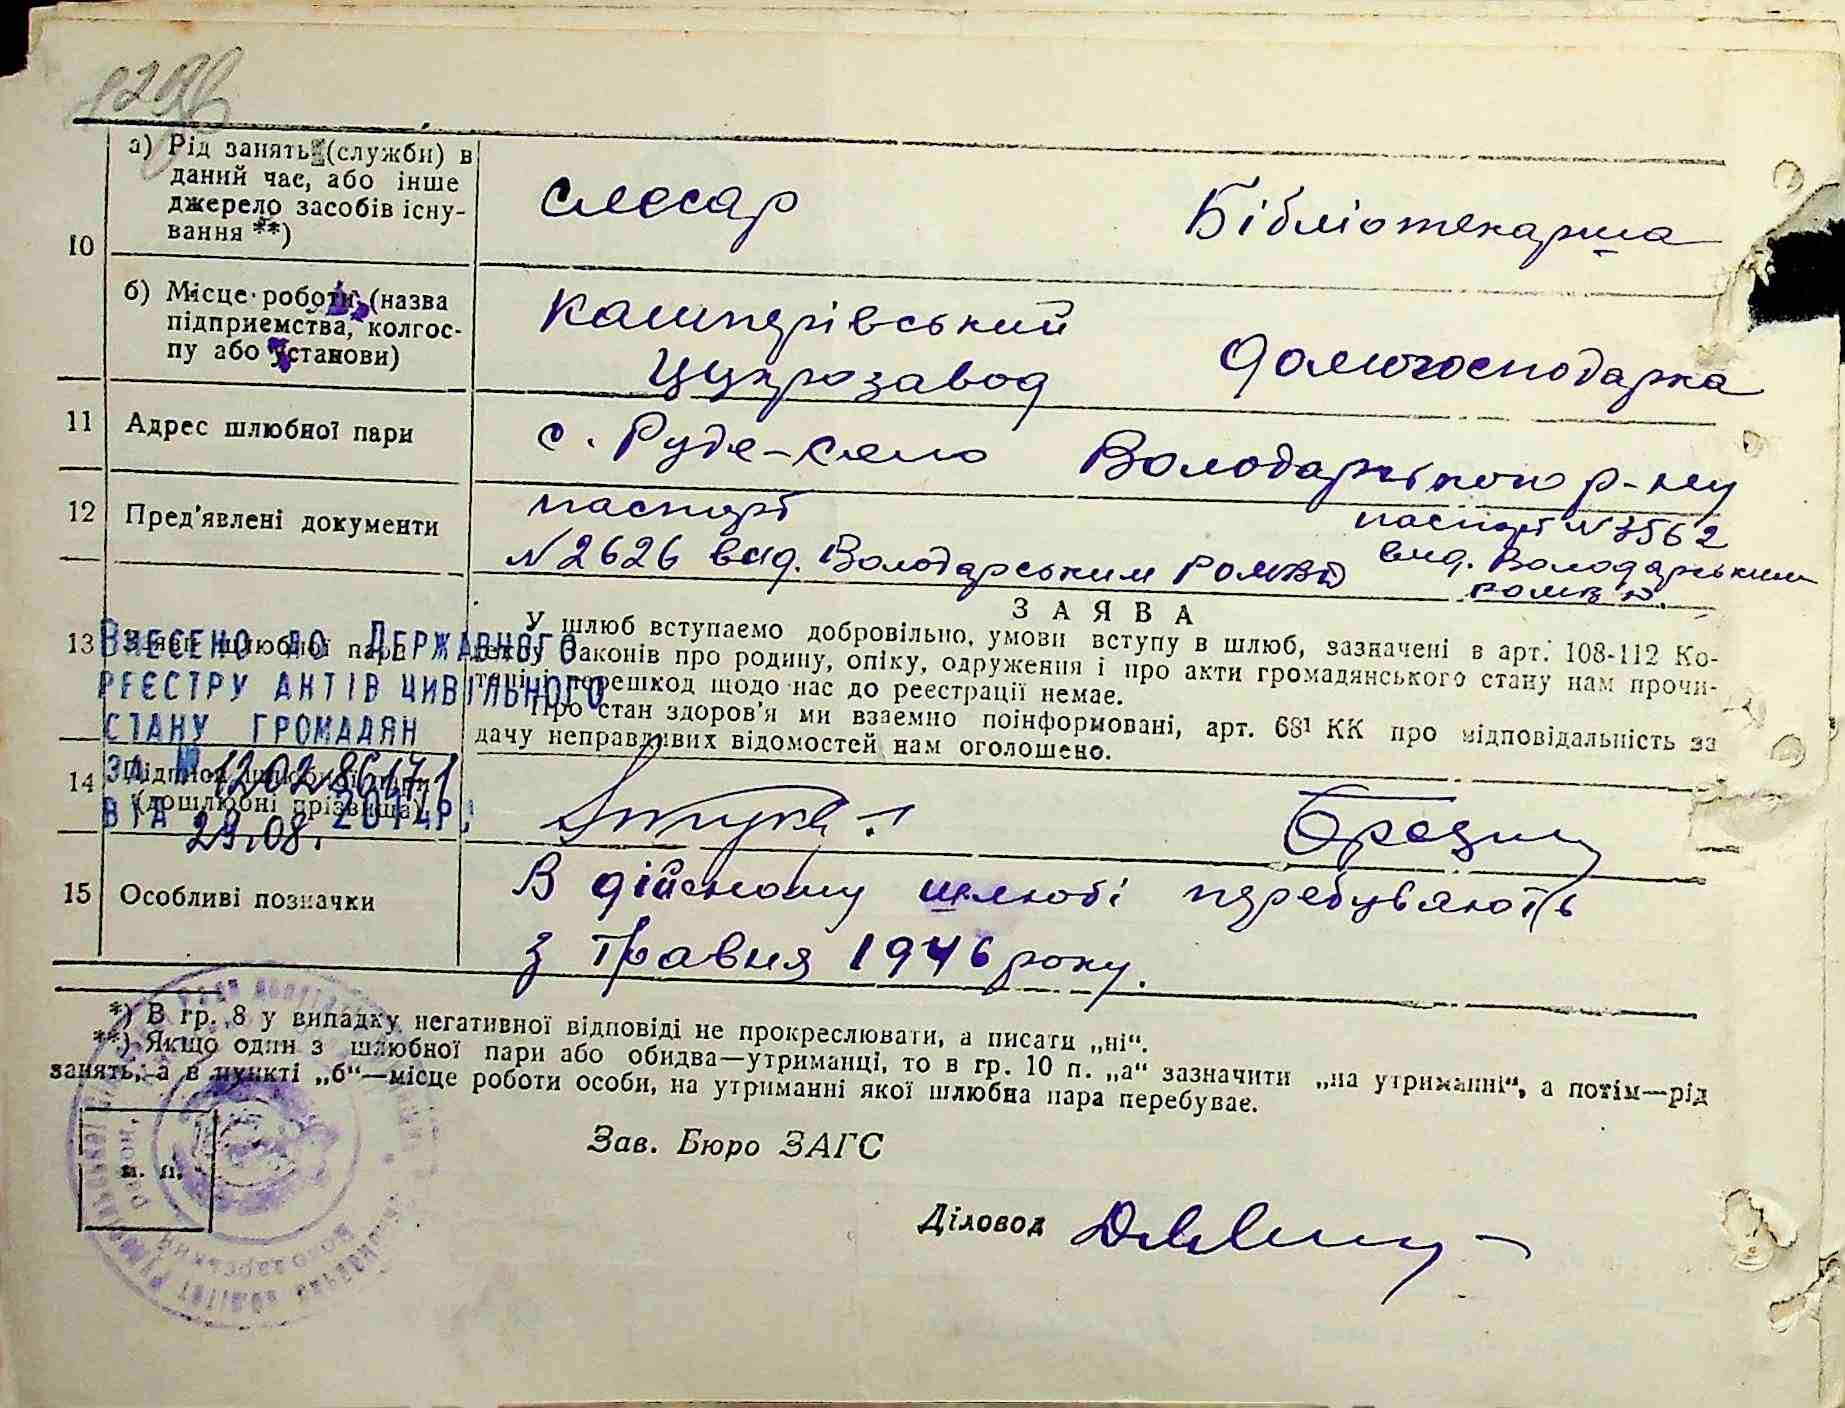 10
а) Рід занять (служби) в
даний час, або інше
джерело засобів існу-
вання **)
слесар
Бібліотекарша
б) Місце роботи (назва
підприємства, колгос-
пу або установи)
Кашперівський
Цукрозавод
домогосподарка
11 Адрес шлюбної пари
с. Руде-село Володарського р-ну
12 Пред'явлені документи
паспорт
№2626 вид. Володарським РОМВД
паспорт №3562
вид. Володарським
РОМВД
13
З А Я В А
У шлюб вступаємо добровільно, умови вступу в шлюб, зазначені в арт. 108-112 Ко-
дексу Законів про родину, опіку, одруження і про акти громадянського стану нам прочи-
тані і перешкод щодо нас до реєстрації немає.
Про стан здоров'я ми взаємно поінформовані, арт. 68¹ КК про відповідальність за
дачу неправдивих відомостей нам оголошено.
Внесено до Державного
реєстру актів цивільного
стану громадян
за № 120286171
від 29.08. 2014р.
14 Підписи шлюбної пари
(дошлюбні прізвища)
15 Особливі позначки
В дійсному шлюбі перебувають
з Травня 1946 року.
*) В гр. 8 у випадку негативної відповіді не прокреслювати, а писати „ні“.
**) Якщо один з шлюбної пари або обидва—утриманці, то в гр. 10 п. „а“ зазначити „на утриманні“, а потім—рід
занять, а в пункті „б“—місце роботи особи, на утриманні якої шлюбна пара перебуває.
м. п.
Зав. Бюро ЗАГС
Діловод